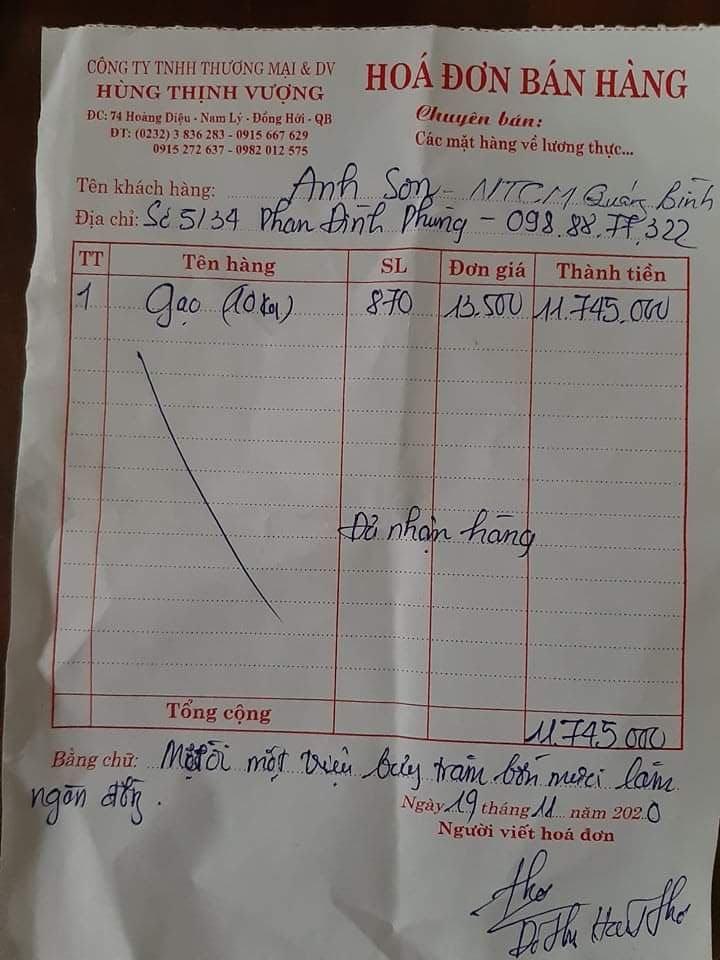 CÔNG TY TNHH THƯƠNG MẠI & DV
HÙNG THỊNH VƯỢNG
ĐC: 74 Hoàng Diệu - Nam Lý - Đồng Hới - QB
ĐT: (0232) 3 836 283 - 0915 667 629
0915 272 637 - 0982 012 575
HOÁ ĐƠN BÁN HÀNG
Chuyên bán:
Các mặt hàng về lương thực...
Tên khách hàng: Anh Sơn - NTCM Quảng Bình
Địa chỉ: Số 5/34 Phan Đình Phùng - 098.88.77.322
TT Tên hàng SL Đơn giá Thành tiền
1 Gạo (10kg) 870 13.500 11.745.000
Đã nhận hàng
Tổng cộng 11.745.000
Bằng chữ: Mười một triệu bảy trăm bốn mươi lăm
ngàn đồng.
Ngày 19 tháng 11 năm 2020
Người viết hoá đơn
Thơ
Thơ